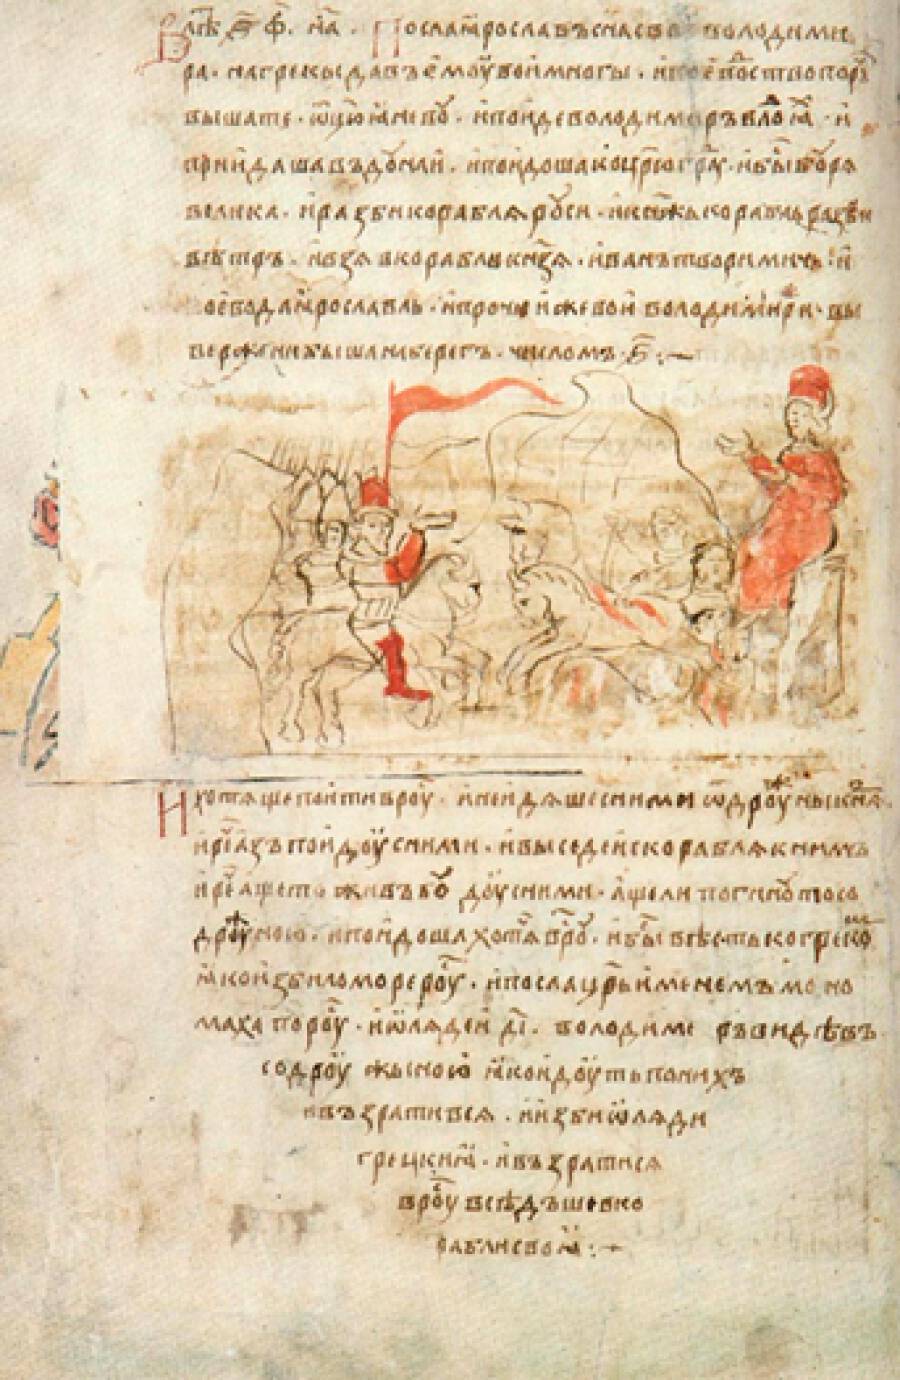 В лѣ҃ ҂ѕ҃ ф҃ н҃а · Посла ꙗрославъ сн҃а сво володими
ра · на грекы давъ ємоу вои многы · и воєвоство пор
вышате · ѿцю ꙗневу · и поиде володимиръ в ло ꙗ · и
приидаша въ дунаи · и поидоша к цр҃югр҃а · и бы буря
велика · и разби корабля руси · и кнжь корабль разби
вѣтръ · и взя в корабль кн҃зя · иванъ творимичь · и
оєвода ꙗрославль · и прочии же вои володимири · вы
вержени быша на берегъ · числомъ · ҂ѕ҃ :~
И хотяще поити в роу · и не идяше с ними ѿ дроужины кн҃я
и рⷱ҇е азъ поидоу с ними · и выседе ис корабля к нимъ
и рⷱ҇е аще живъ буду с ними · аще ли погину то со
дроужиною · и поидоша хотя в роу · и бы вѣсть ко греко
ꙗко избило море роу · и посла цр҃ь именемъ моно
маха по роу · и ѡляди д҃і · володиме ръ видѣвъ
со дроужыною ꙗко идоуть по нихъ
въвзратився · и изби ѡляди
грецкиꙗ · и възратися
в роу вседъше в ко
рабли своꙗ :~